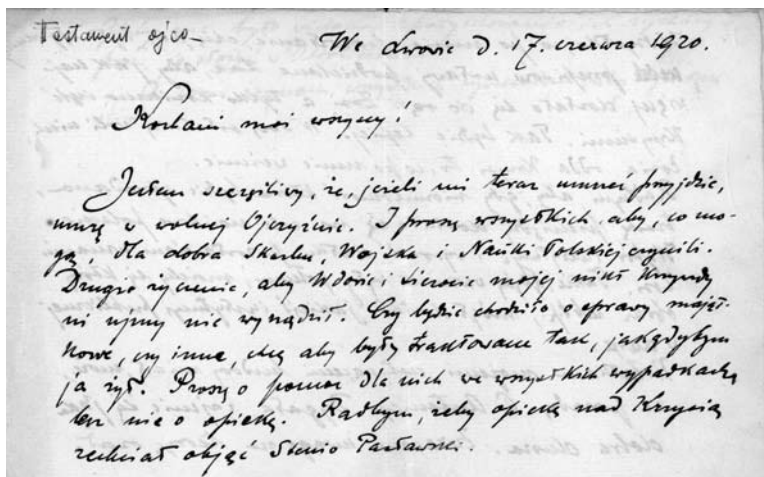 Testament ojca
We Lwowie d. 17. czerwca 1920.
Kochani moi wszyscy!
Jestem szczęśliwy, że, jeżeli mi teraz umrzeć przyjdzie,
umrę w wolnej Ojczyźnie. I proszę wszystkich aby, co mo-
gą, dla dobra Skarbu, Wojska i Nauki Polskiej czynili.
Drugie życzenie, aby Wdowie i Sierocie mojej nikt krzywdy
ni ujmy nie wyrządził. Czy będzie chodziło o sprawy mająt-
kowe, czy inne, chcę aby były traktowane tak, jakgdybym
ja żył. Proszę o pomoc dla nich we wszystkich wypadkach,
lecz nie o opiekę. Radbym, żeby opiekę nad Krzysią
zechciał objąć Stenio Pacławski.